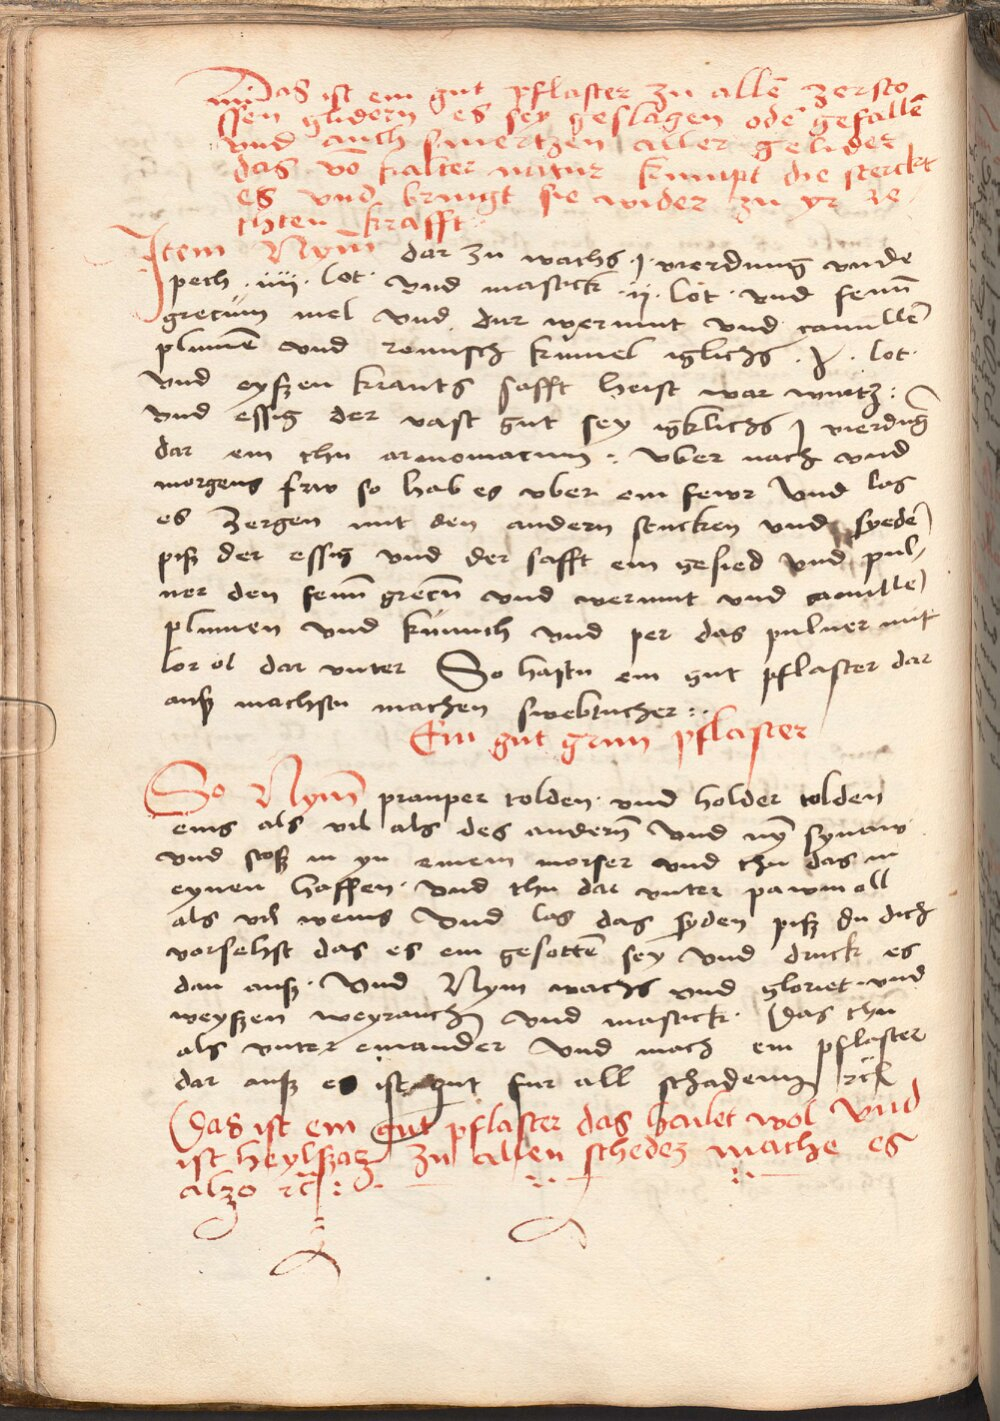 Das ist ein gut pflaster zu allē zersto
ssen glidern es sey geslagen oder gefallē
vnd auch smertzen aller gelider
das vō kalter natur kumpt die sterckt
es vnd bringt sie wider zu yr re
chten krafft
Item Nym dar zu wachs j vierdung vnde
pech iiij lot vnd mastick ij lot vnd fenū
grecum mel vnd dur wermut vnd camillē
plumē vnd romisch kumel iglichs j lot
vnd eyszen krauts safft heist war wurtz
vnd essig der vast gut sey igklichs j vierdūg
dar ein thu armomacum vber nach vnd
morgens frw so hab es vber ein fewr vnd las
es zergen mit den andern stucken vnd syedē
pisz der essig vnd der safft ein gesied vnd pul
uer den fenū grecū vnd wermut vnd camille
plumen vnd kumich vnd per das puluer mit
lor ol dar vnter So hastu ein gut pflaster dar
ausz machstu machen swebtucher
Ein gut grun pflaster
So Nym praunper tolden vnd holder tolden
eins als vil als des andern vnd ny synaw
vnd stosz in yn einem morser vnd thu das in
eynen haffen vnd thu dar vnter pawm oll
als vil weins vnd las das syden pisz du dich
vorsehst das es ein gesottē sey vnd druck es
dan ausz vnd Nym wachs vnd gloriet vnd
weyszen weyrauch vnd mastick Das thu
als vnter einander vnd mach ein pflaster
dar ausz es ist gut fur all schaden rc
Das ist ein gut pflaster das hailet wol vnd
ist heylszam zu allen schedez mache es
alzo rc